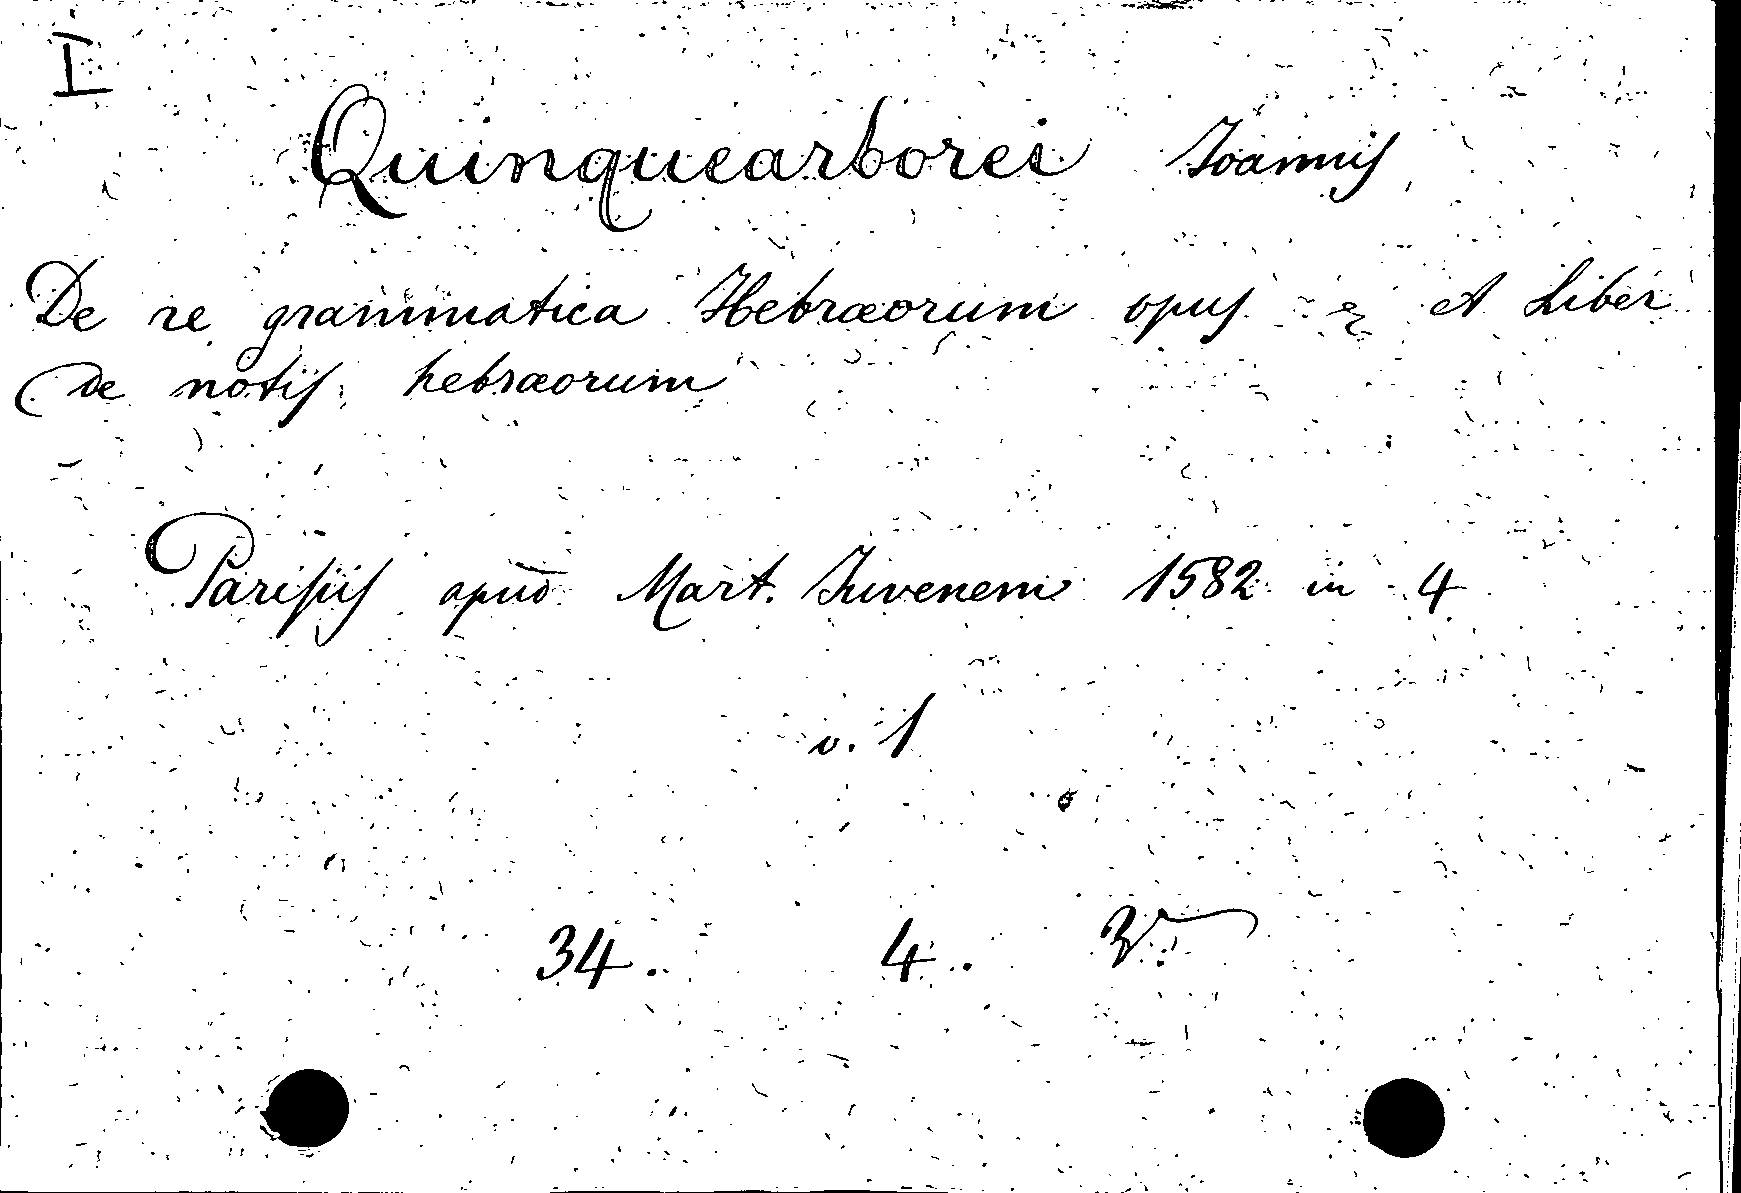 I
Quinquearborei Joannis
De re grammatica Hebræorum opus et Liber
de notis hebræorum
Parisiis apud Mart. Juvenem 1582 in 4
v. 1
34. 4.